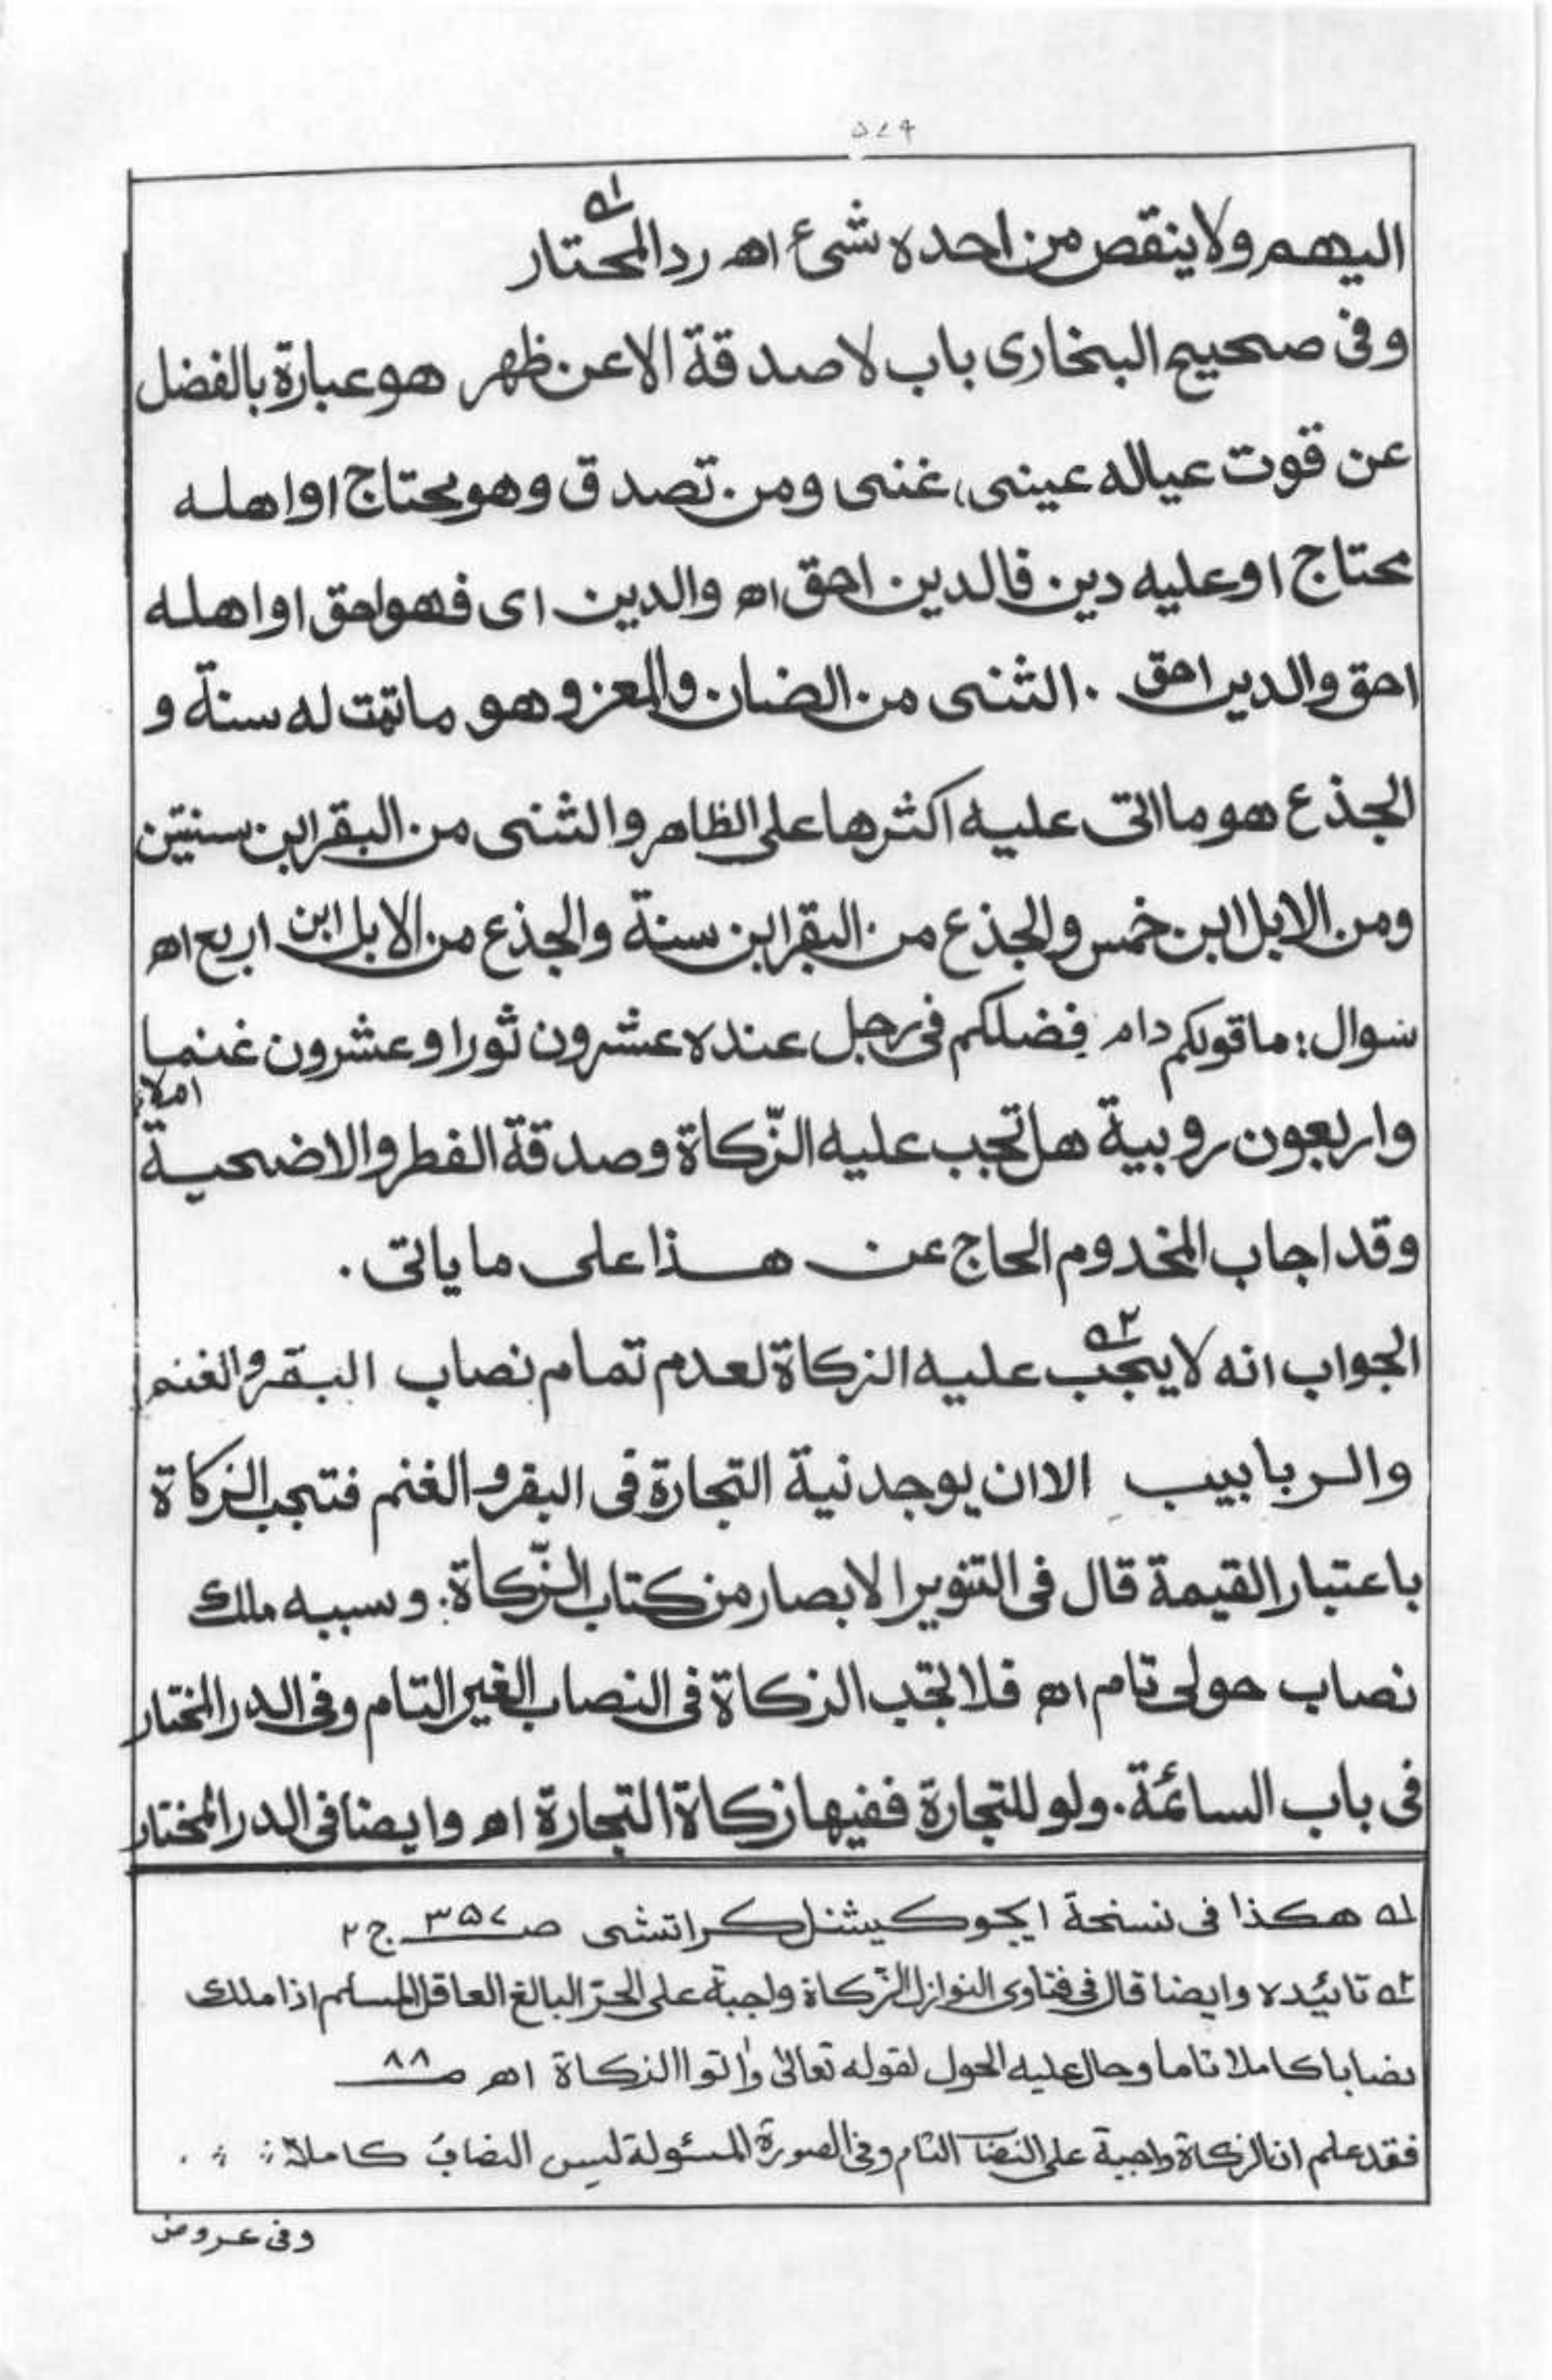 ۵۷۹
اليهم ولا ينقص من احده شئ اه رد المحتار له۱
وفى صحيح البخارى باب لا صدقة الا عن ظهر هو عبارة بالفضل
عن قوت عياله عينى، غنى ومن تصدق وهو محتاج او اهله
محتاج او عليه دين فالدين احق اه والدين اى فهو احق او اهله
احق والدين احق . الثنى من الضان والمعز و هو ما تمت له سنة و
الجذع هو ما اتى عليه اكثرها على الظاهر والثنى من البقر ابن سنتين
ومن الابل ابن خمس والجذع من البقر ابن سنة والجذع من الابل ابن اربع اه
سوال: ما قولكم دام فضلكم فى رجل عنده عشرون ثورا و عشرون غنما
واربعون روبية هل تجب عليه الزّكاة وصدقة الفطر والاضحية ام لا؟
وقد اجاب المخدوم الحاج عن هذا على ما ياتى .
الجواب انه لا يجب۲ عليه الزكاة لعدم تمام نصاب البقر والغنم
والربابيب الا ان يوجد نية التجارة فى البقر و الغنم فتجب الزكاة
باعتبار القيمة قال فى التنوير الابصار من كتاب الزّكاة: وسببه ملك
نصاب حولى تام اه فلا تجب الزكاة فى النصاب الغير التام وفى الدر المختار
فى باب السائمة. ولو للتجارة ففيها زكاة التجارة اه وايضا فى الدر المختار
له هكذا فى نسخة ايجوكيشنل كراتشى صـ ۳۵۷ ج ۲
۲ه تائيده وايضا قال فى فتاوى النوازل الزّكاة واجبة على الحرّ البالغ العاقل المسلم اذا ملك
نصابا كاملا تاما وحال عليه الحول لقوله تعالىٰ واٰتوا الزكاة اه صـ ۸۸
فقد علم ان الزكاة واجبة على النصاب التام وفى الصورة المسئولة ليس النصابُ كاملاً
وفى عروض